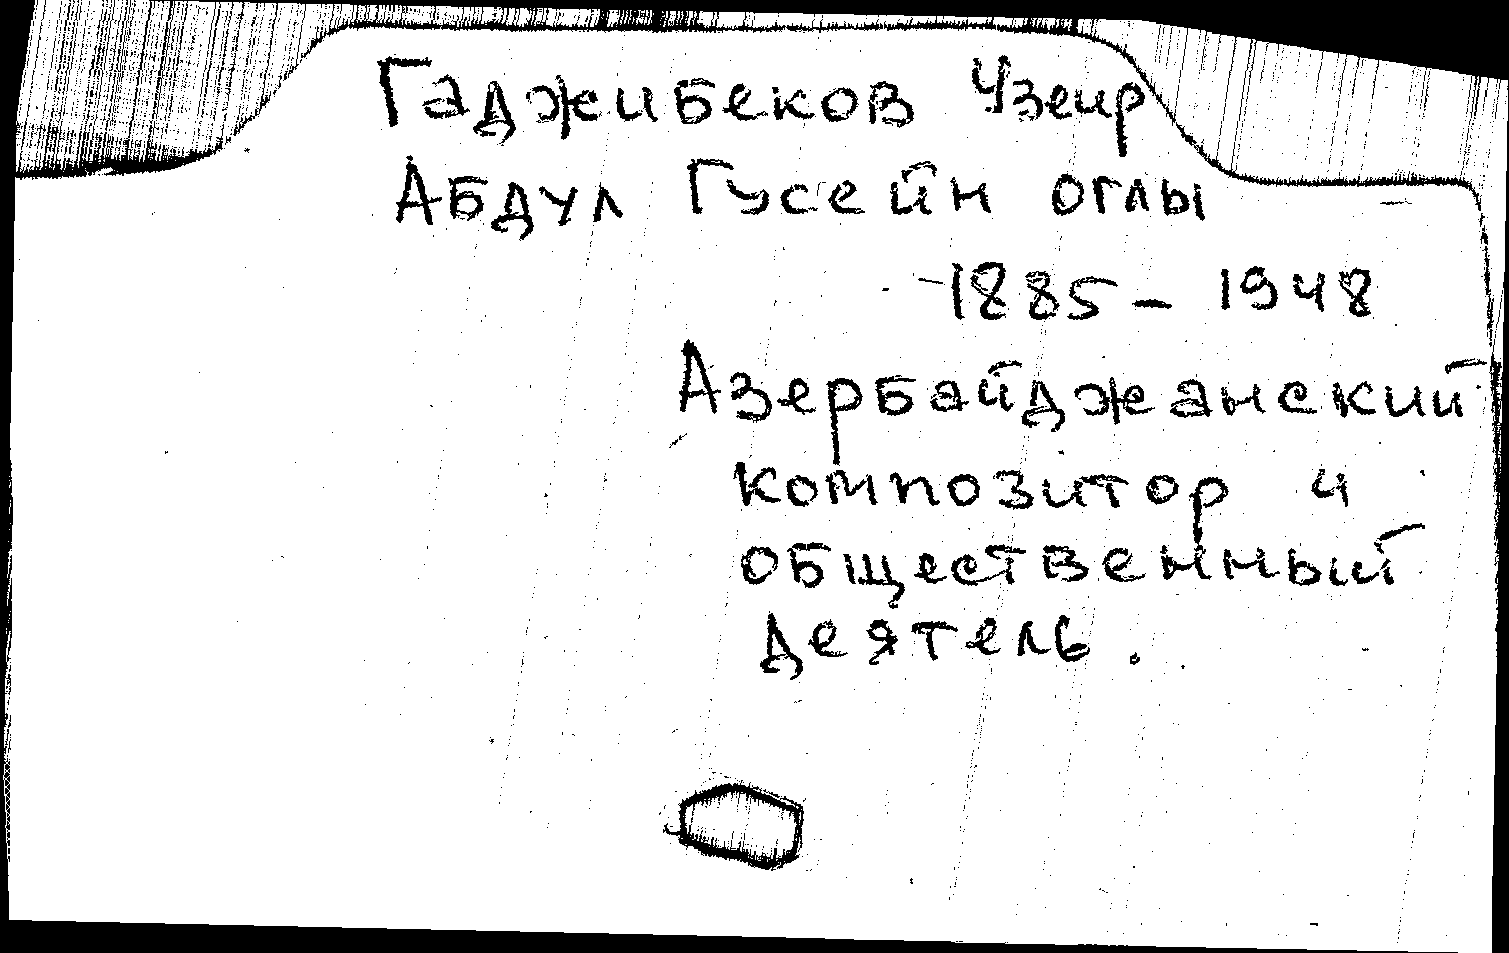 Гаджибеков Узеир
Абдул Гусейн оглы
1885 - 1948
Азербайджанский
композитор и
общественный
деятель.